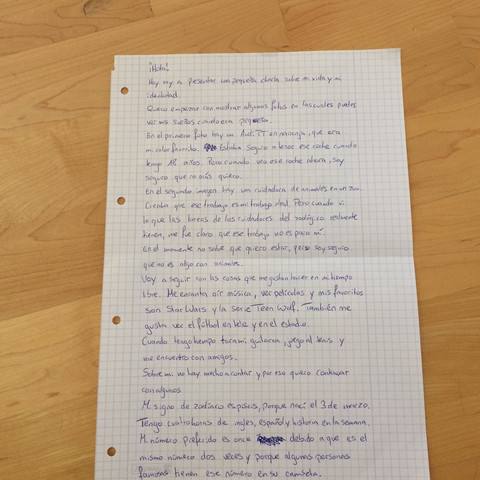 ¡Hola!
Hoy voy a presentar una pequeña charla sobre mi vida y mi
identidad.
Quiero empezar con mostrar algunas fotos en las cuales puedes
ver mis sueños cuando era pequeña.
En el primero foto hay un Audi TT en naranja, que era
mi color favorito. Estaba seguro a tener ese coche cuando
tengo 18 años. Pero cuando veo ese coche ahora, soy
seguro que no más quiero.
En el segundo imagen hay una cuidadora de animales en un zoo.
Creaba que ese trabajo es mi trabajo ideal. Pero cuando vi
lo que las tareas de los cuidadores del zoológico realmente
tienen, me fue claro que ese trabajo no es para mí.
En el momento no sabre que quiero estar, pero soy seguro
que no es algo con animales.
Voy a seguir con las cosas que me gustan hacer en mi tiempo
libre. Me encanta oír música, ver películas y mis favoritos
son Star Wars y la serie Teen Wolf. También me
gusta ver el fútbol en tele y en el estadio.
Cuando tengo tiempo toca mi guitarra, juego al tenis y
me encuentro con amigos.
Sobre mi no hay mucho a contar y por eso quiero continuar
con algunos
Mi signo de zodíaco es piscis, porque nací el 3 de marzo.
Tengo cuatro horas de ingles, español y historia en la semana.
Mi número preferido es once debido a que es el
mismo número dos veces y porque algunas personas
famosas tienen ese número en su camiseta.